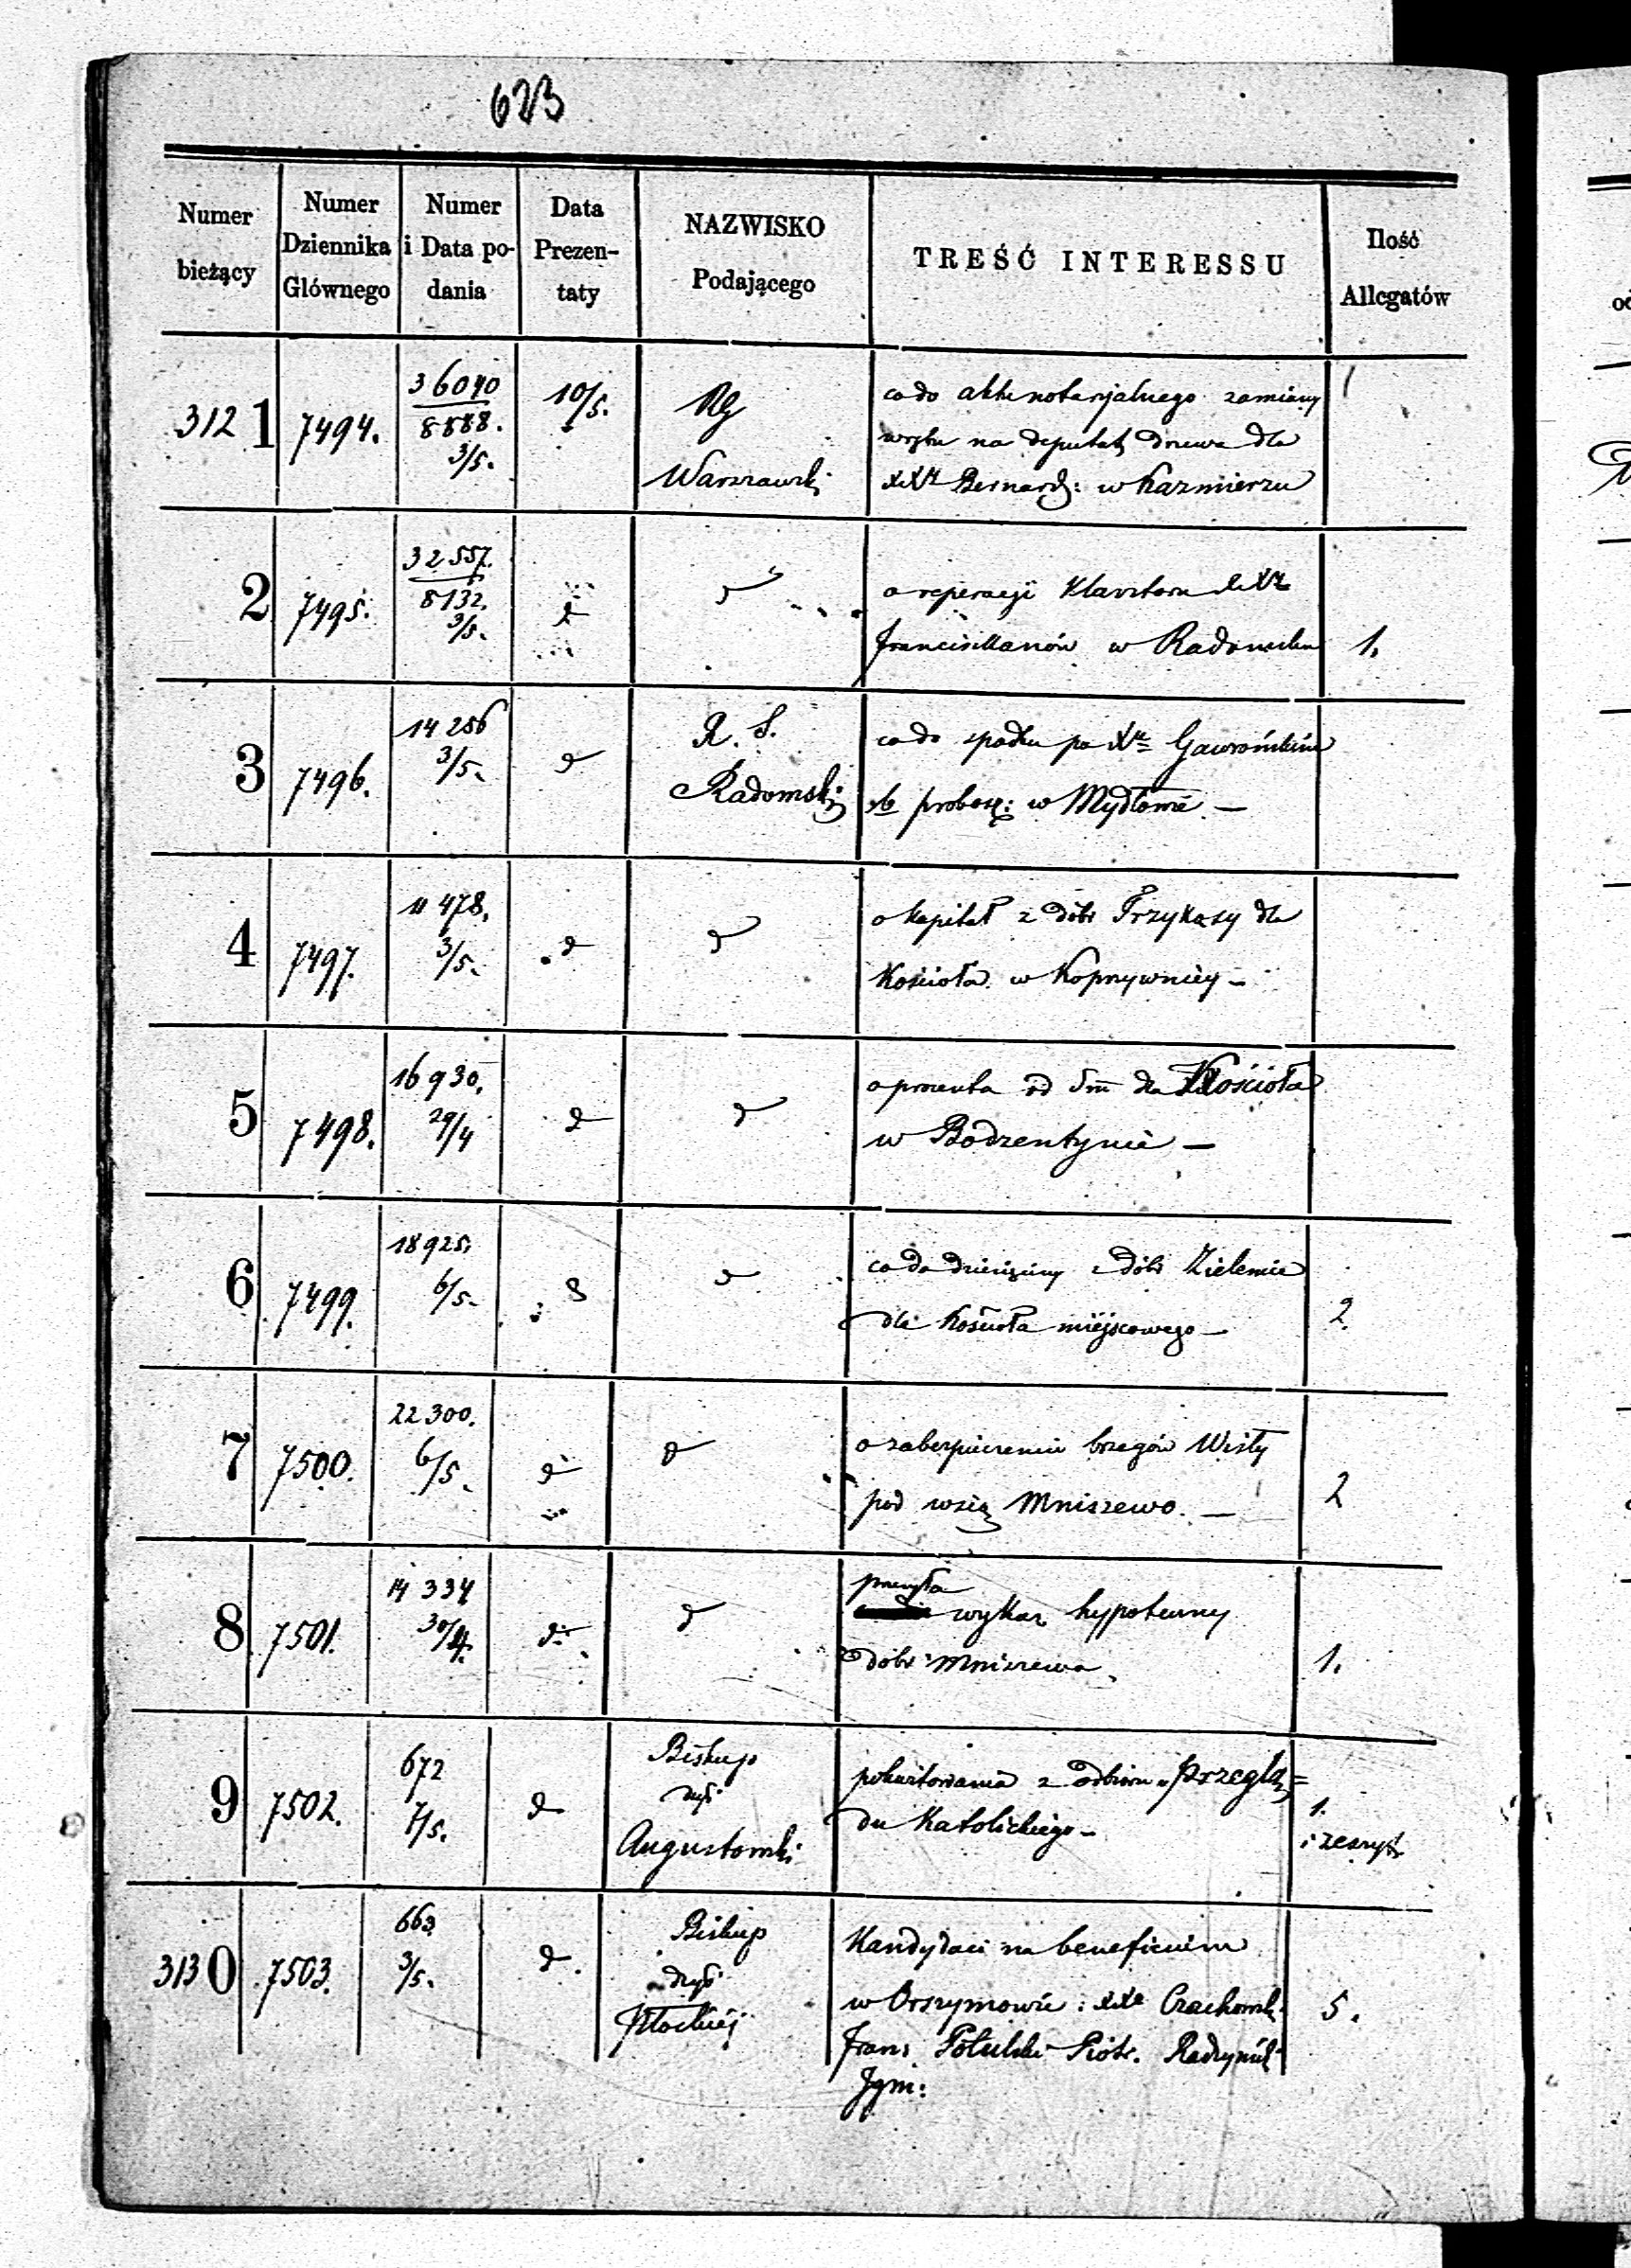 623
Numer bieżący
Numer Dziennika Głównego
Numer i Data podania
Data Prezentaty
NAZWISKO Podającego
TREŚĆ INTERESSU
Ilość Allegatów
3121 7494. 36040 / 8888. 3/5. 10/5. RG Warszawski
co do aktu notarjalnego zamiany
wrębu na deputat drzewa dla
XXy Bernard: w Kazmierzu
2 7495. 32557. / 8132. 3/5. d d
o reperacyi Klasztoru XXy
Franciszkanów w Radomsku 1.
3 7496. 14256 3/5. d R. G. Radomski
co do spadku po Xu Gawrońskim
b probosz: w Mydłowie —
4 7497. 11478. 3/5. d d
o kapitał z dóbr Przykasy dla
Kościoła w Koprzywnicy —
5 7498. 16930. 29/4 d d
o procenta od Sum dla Kościoła
w Bodzentynie —
6 7499. 18925. 6/5. d d
co do dziesięciny z dóbr Zielenice
dla Kościoła miejscowego — 2.
7 7500. 22300. 6/5. d d
o zabezpieczeniu brzegów Wisły
pod wsią Mniszewo. — 2
8 7501. 14334 30/4. d d
przesyła
wykaz hypoteczny
dóbr Mniszewa. 1.
9 7502. 672 7/5. d Biskup dyec Augustowski
pokwitowania z odbioru „Przeglą=
du Katolickiego — 1. i zeszyt
3130 7503. 663 3/5. d. Biskup dyec Płockiéj
Kandydaci na beneficium
w Orszymowie: XXa Czachowsk.
Fran: Potulski Piotr. Radzymiń
Igni: 5.